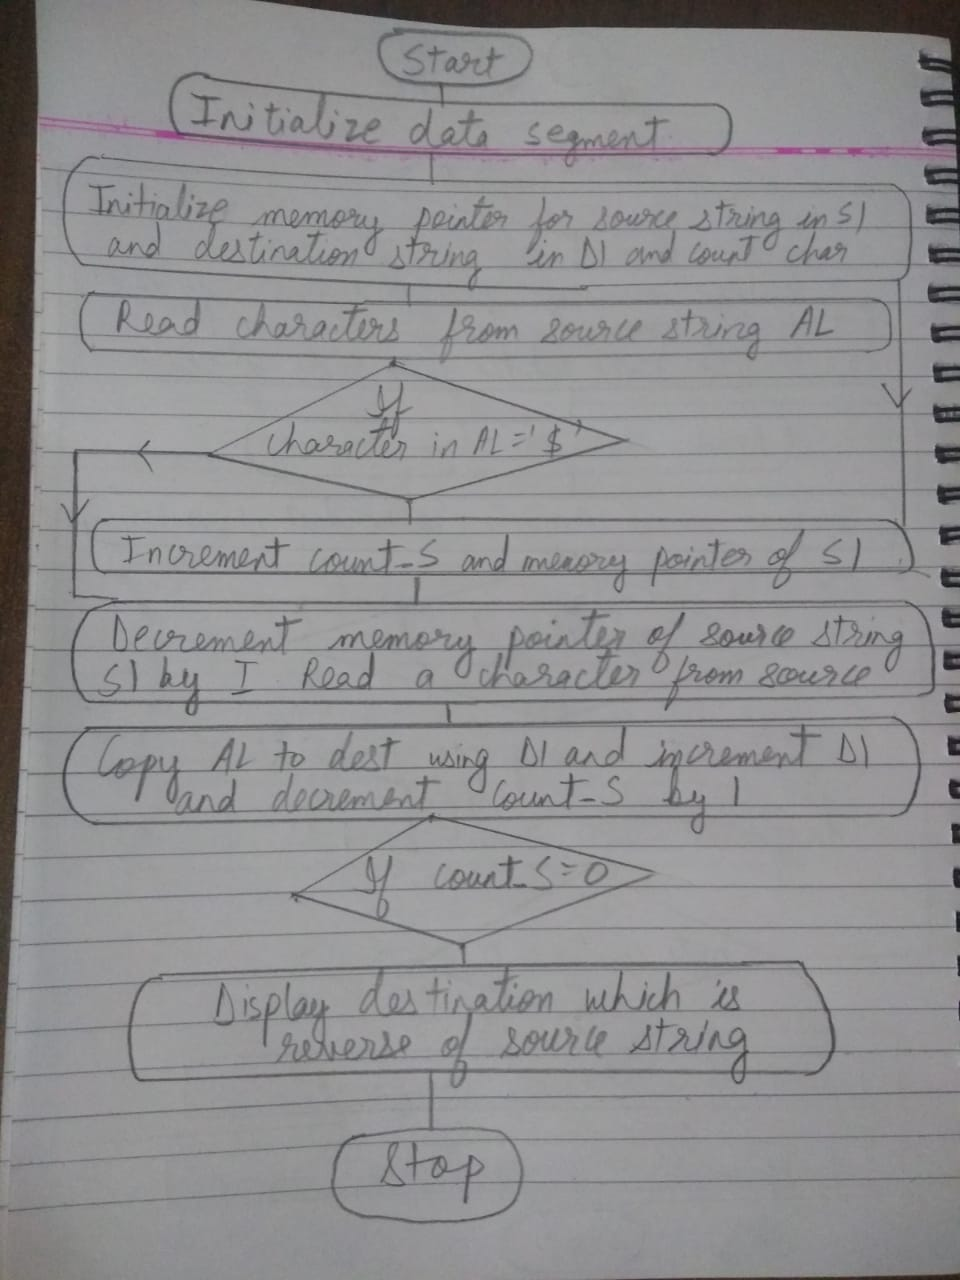 Start
Initialize data segment
Initialize memory pointer for source string in SI
and destination string in DI and count char
Read characters from source string AL
If
character in AL = '$'
Increment count_S and memory pointer of SI
Decrement memory pointer of source string
SI by I Read a character from source
Copy AL to dest using DI and increment DI
and decrement count_S by 1
If count_S=0
Display destination which is
reverse of source string
Stop